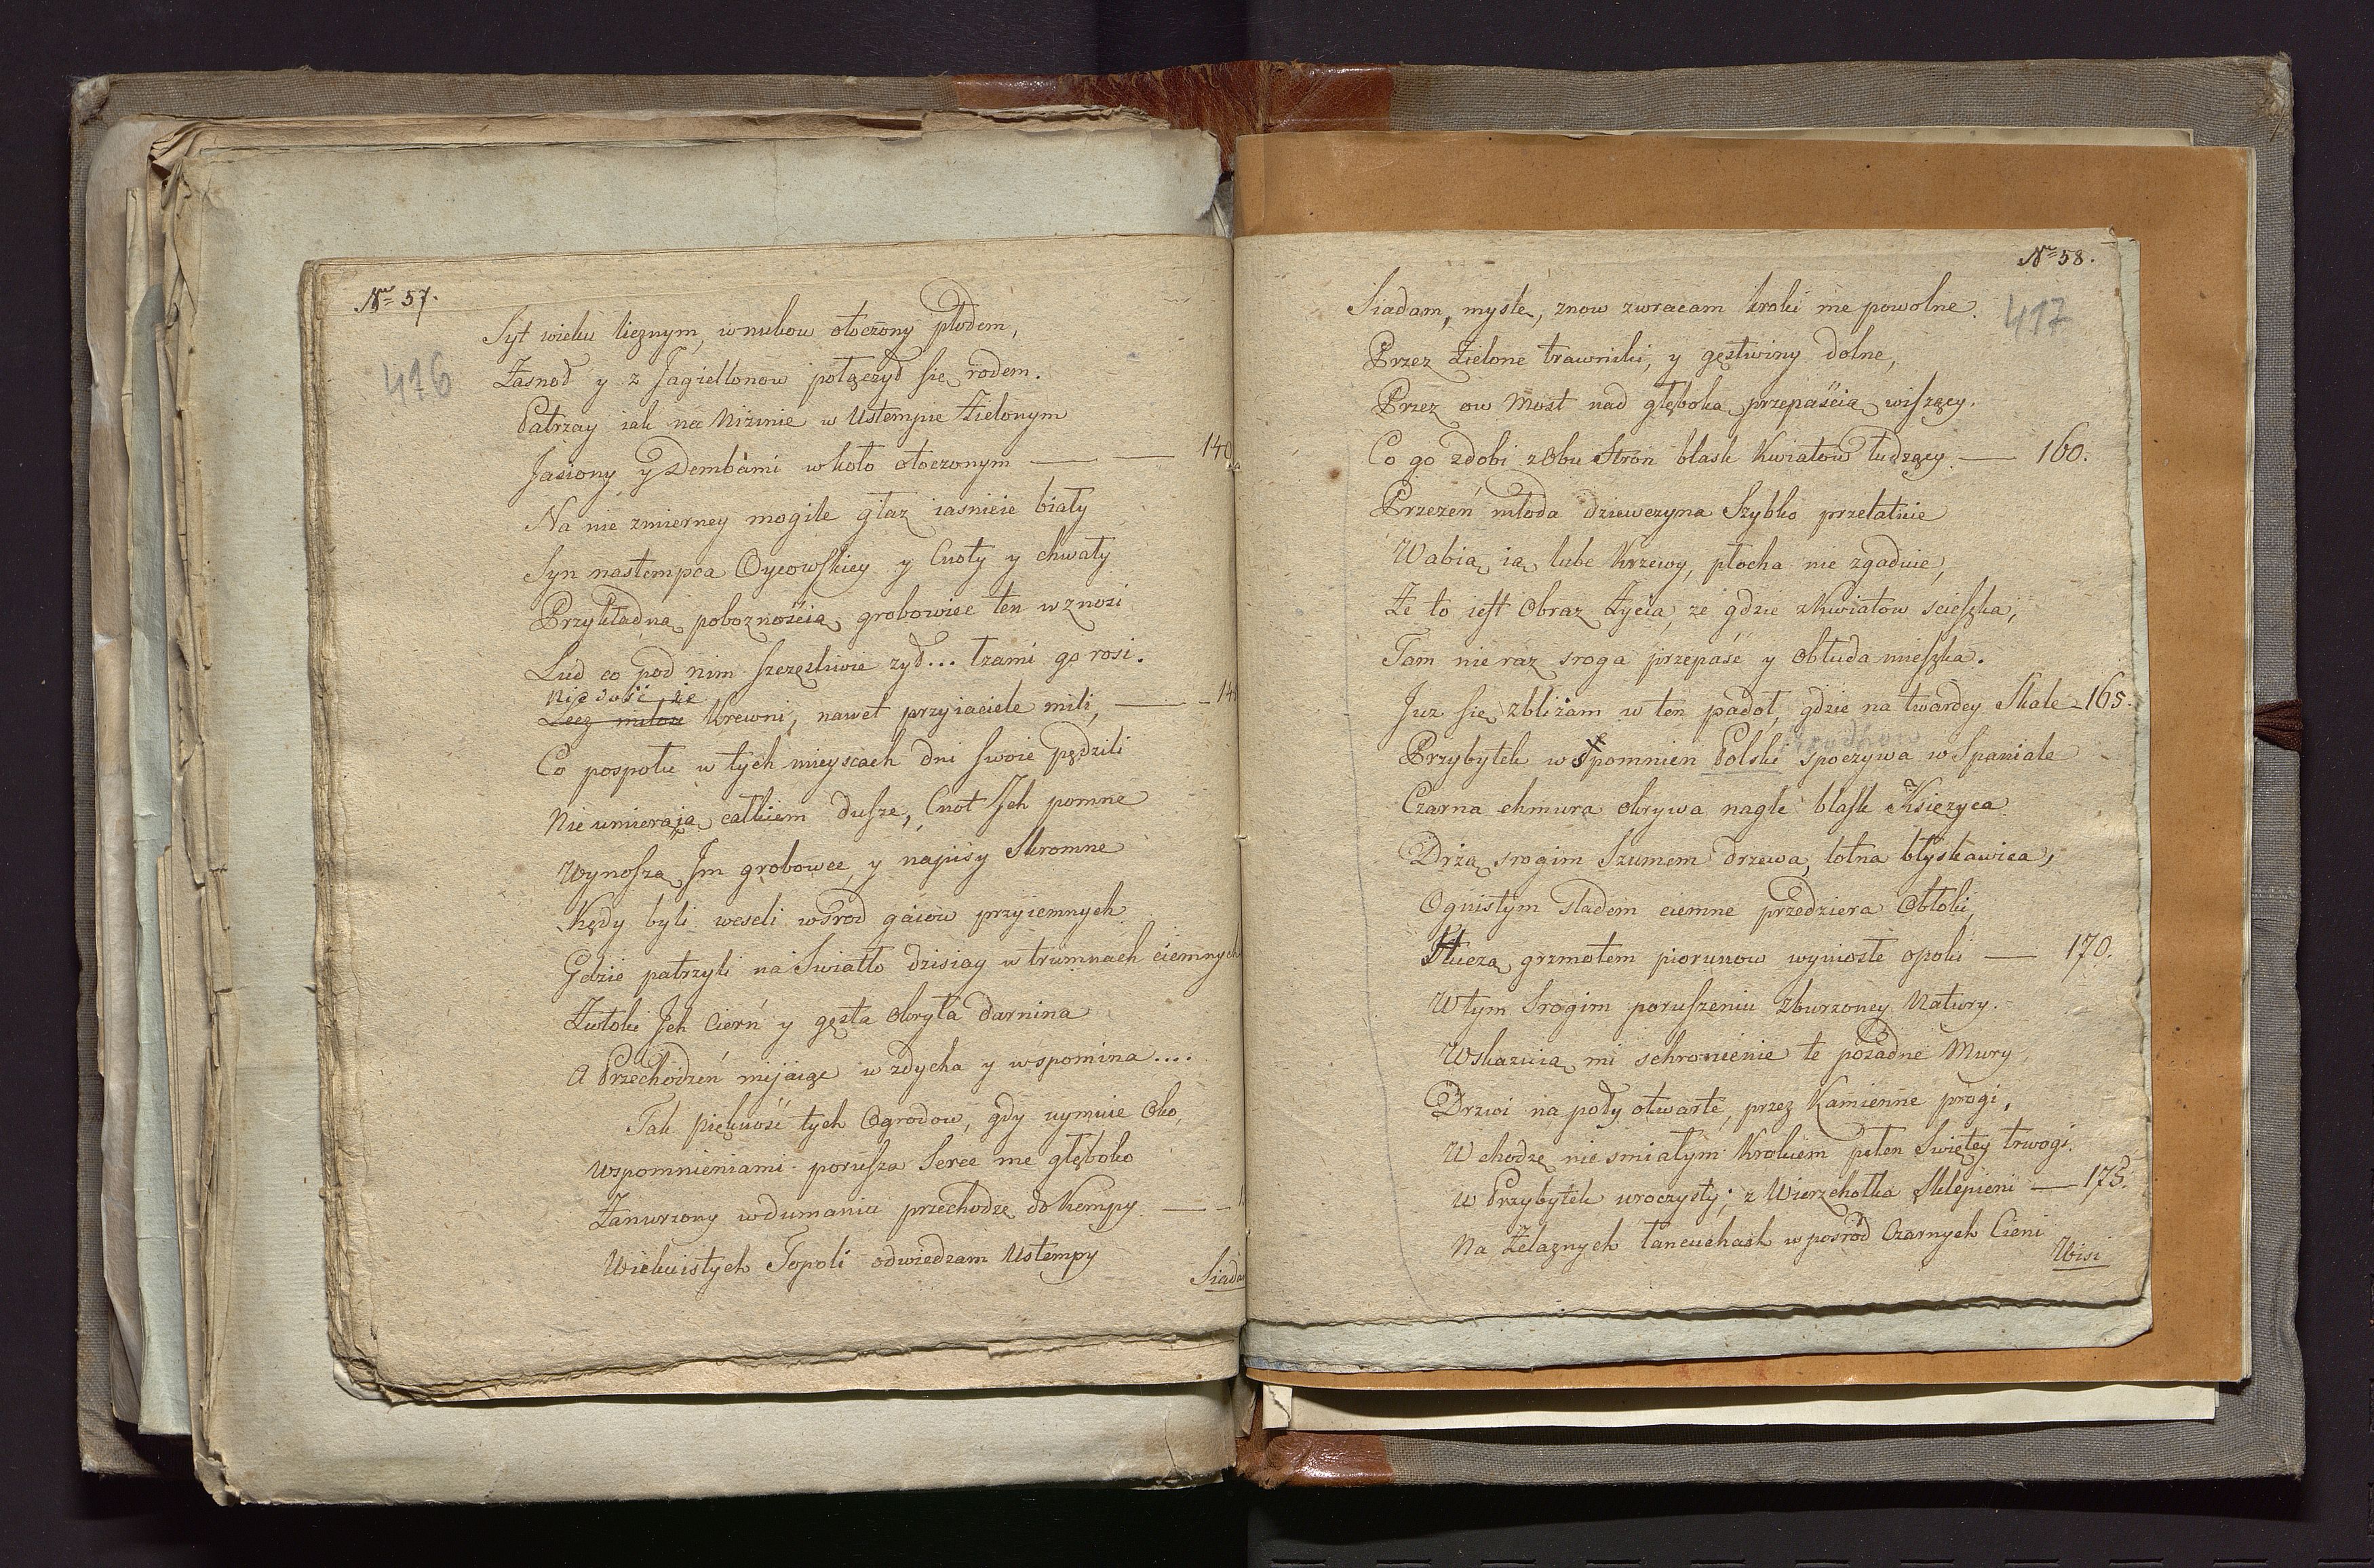 Nro 57.
476
Syt wieku licznym, wnukow otoczony płodem,
Zasnoł y z Jagiellonow połączył się rodem.
Patrzay iak na Nizinie w Ustempie Zielonym
Jasiony y Dembami wkoło otoczonym — — 140
Na nie zmierney mogile głaz iasnieie biały
Syn nastempca Oycowskiey y Cnoty y chwały
Przykładną poboznością grobowiec ten wznosi
Lud co pod nim szczęsliwie zył... łzami go rosi.
Nie dość że
Lecz Krewni, nawet przyiaciele mili, — — 14
Co pospołu w tych mieyscach dni swoie pędzili
Nie umieraią całkiem dusze, Cnot Jch pomne
Wynoszą Jm grobowce y napisy Skromne
Kędy byli weseli wśrod gaiow przyiemnych
Gdzie patrzyli na Swiatło dzisiay w trumnach ciemnych
Zwłoki Jch Cierń y gęsta okryła darnina
A Przechodzeń mijaiąc wzdycha y wspomina....
Tak piękność tych Ogrodow, gdy uymuie Oko,
Wspomnieniami porusza Serce me głęboko
Zanurzony wdumaniu przechodzę do Kempy — — 1
Wiekuistych Topoli odwiedzam Ustempy
Siada
Nro 58.
417
Siadam, mysle, znow zwracam kroki me powolne.
Przez Zielone trawniki, y gęstwiny dolne,
Przez ow Most nad głęboką przepaścią wiszący.
Co go zdobi zObu Stron blask Kwiatow łudzący. — 160.
Przezeń młoda dziewczyna Szybko przelatuie
Wabią ią lube Krzewy, płocha nie zgaduie,
Ze to iest Obraz Zycia, ze gdzie zKwiatow scieszka,
Tam nie raz sroga przepaść y Obłuda mieszka.
Juz się zbliżam w ten padoł, gdzie na twardey Skale - 165.
Przybytek wspomnien Polski spoczywa wSpaniale
Czarna chmura okrywa nagle blask Księzyca
Drżą srogim Szumem drzewa, lotna błyskawica,
Ognistym sladem ciemne przedziera Obłoki,
Tłuczą grzmotem piorunow wyniosłe opoki — 170.
W tym Srogim poruszeniu zburzoney Natury.
Wskazuią mi schronienie te poządne Mury
Drzwi na poły otwarte, przez Kamienne progi,
Wchodzę nie smiałym Krokiem pełen Swiętey trwogi.
W Przybytek uroczysty; z Wierzchołka Sklepieni — 175.
Na Zelaznych łancuchach w posrod Czarnych Cieni
Wisi